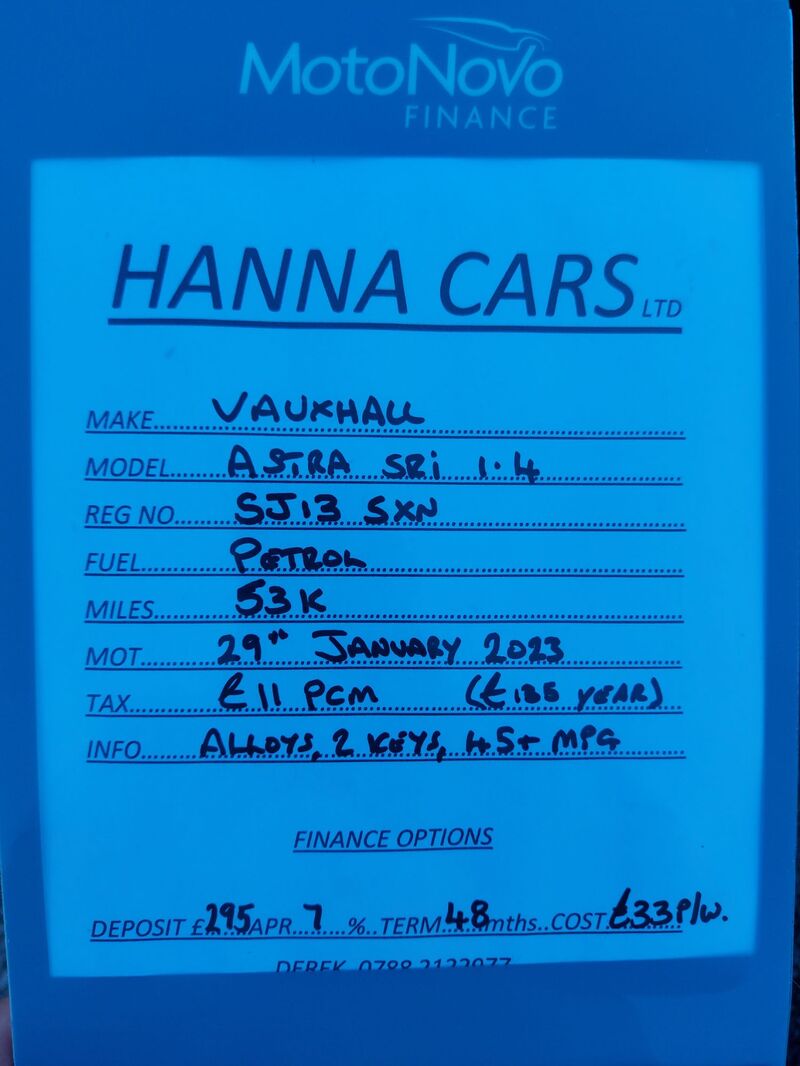 MotoNovo
FINANCE
HANNA CARS LTD
MAKE......VAUXHALL
MODEL......ASTRA SRi 1.4
REG NO......SJ13 SXN
FUEL......PETROL
MILES......53K
MOT......29TH JANUARY 2023
TAX......£11 PCM (£135 YEAR)
INFO......ALLOYS, 2 KEYS, 45+ MPG
FINANCE OPTIONS
DEPOSIT £295 APR 7 %..TERM 48 mths..COST £33 P/W.
DEREK 0788